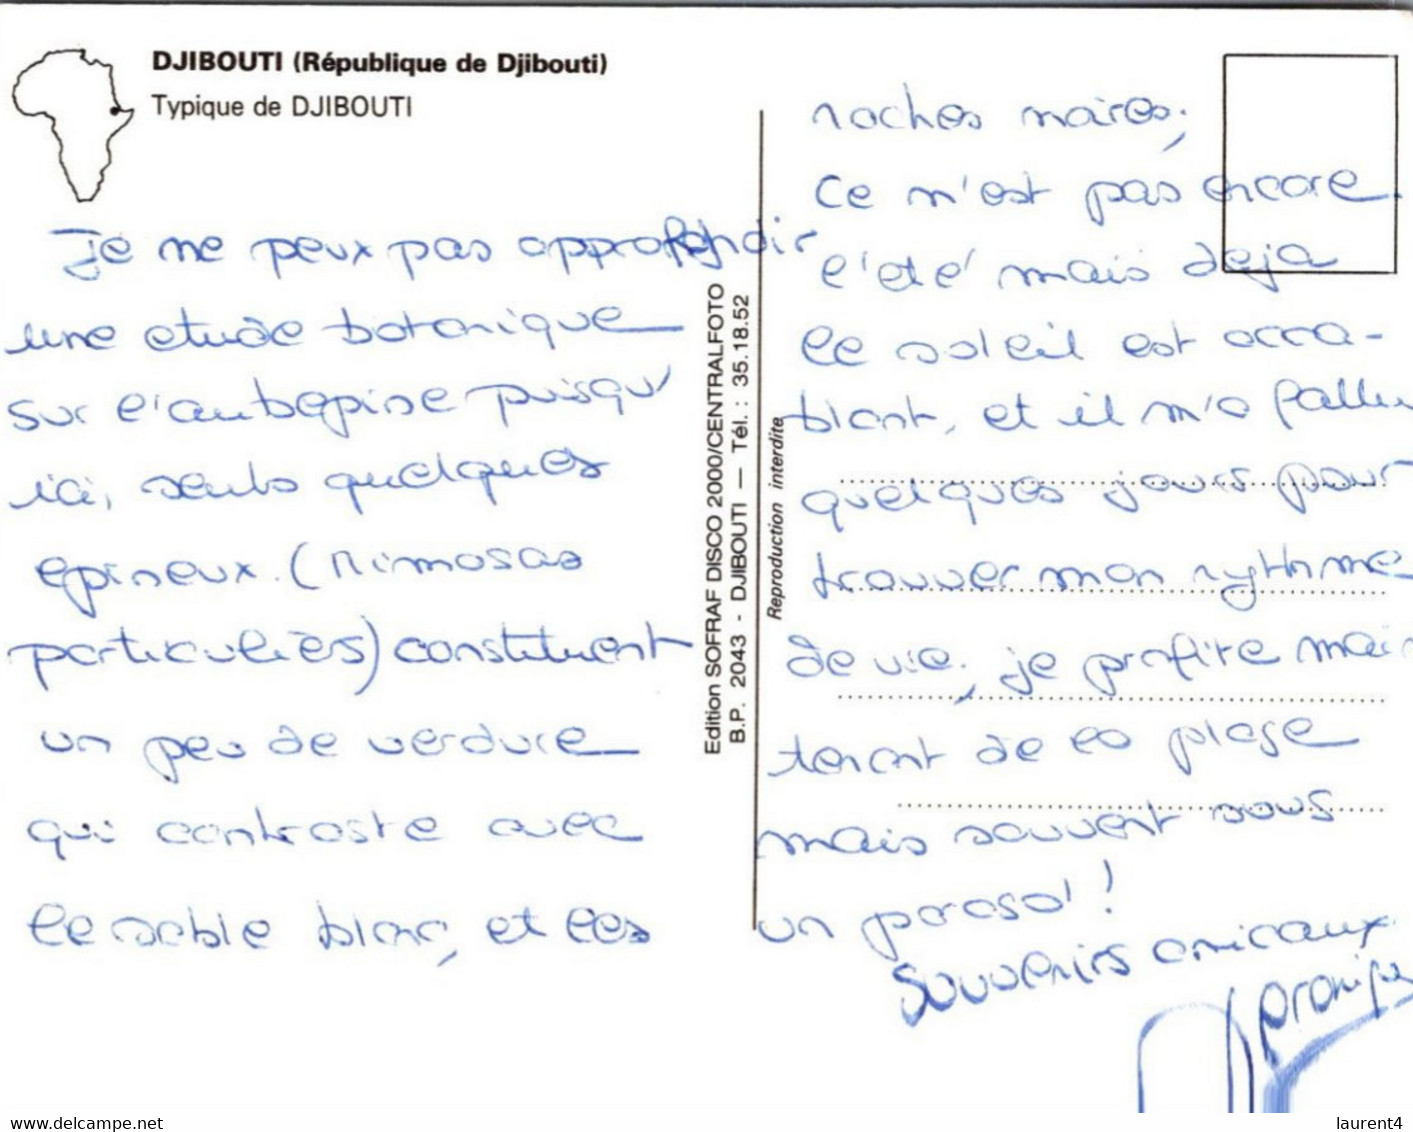 DJIBOUTI (République de Djibouti)
Typique de DJIBOUTI
Je ne peux pas approfondir
une etude botanique
sur l'aubepine puisqu'
ici, seuls quelques
epineux. (Mimosas
particuliers) constituent
un peu de verdure
qui contraste avec
le sable blanc, et les
Edition SOFRAF DISCO 2000/CENTRALFOTO
B.P. 2043 - DJIBOUTI — Tél. : 35.18.52
Reproduction interdite
roches noires;
Ce n'est pas encore
l'eté mais deja
le soleil est acca-
blant, et il m'a fallu
quelques jours pour
trouver mon rythme
de vie; je profite main
tenant de la plage
mais souvent sous
un parasol!
Souvenirs amicaux
www.delcampe.net
laurent4